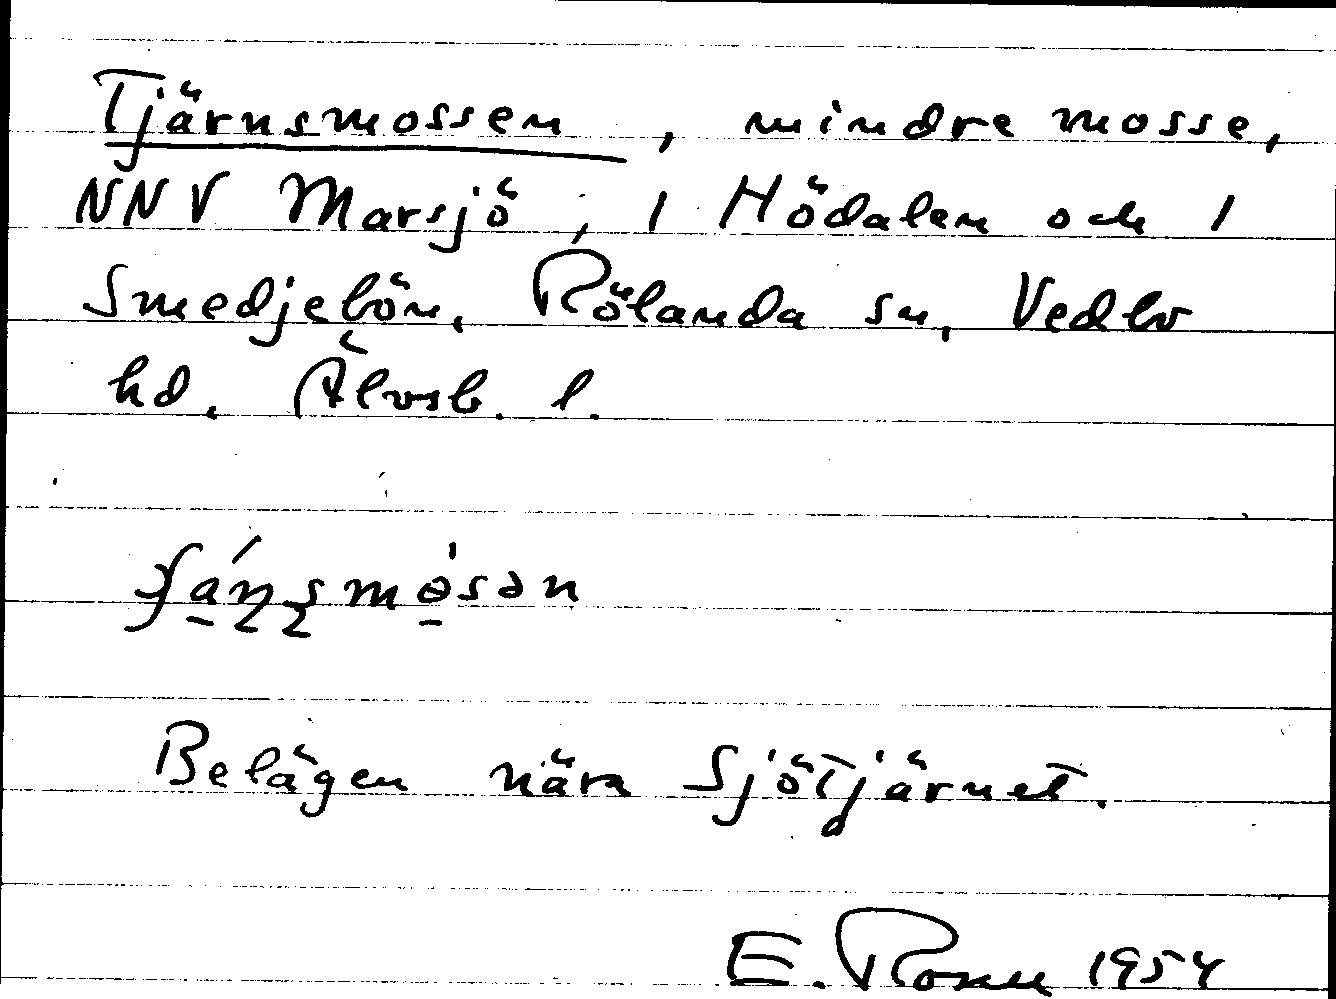 Tjärnsmossen, mindre mosse,
NNV Marsjö, 1 Hödalen och 1
Smedjebön. Rölanda sn, Vedbo
hd. Älvsb. l.
Belägen nära Sjötjärnet.
E. Rosen 1954